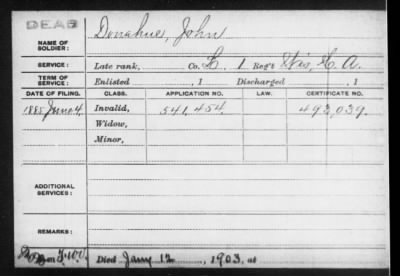 DEAD
NAME OF SOLDIER: Donahue, John
SERVICE: Late rank, Co. L. 1 Reg't Wis, H. A.
TERM OF SERVICE: Enlisted , 1 Discharged , 1
DATE OF FILING. CLASS. APPLICATION NO. LAW. CERTIFICATE NO.
1885 June 4. Invalid, 541,454. 493,039.
Widow,
Minor,
ADDITIONAL SERVICES:
REMARKS:
Died Jany 12, 1903, at